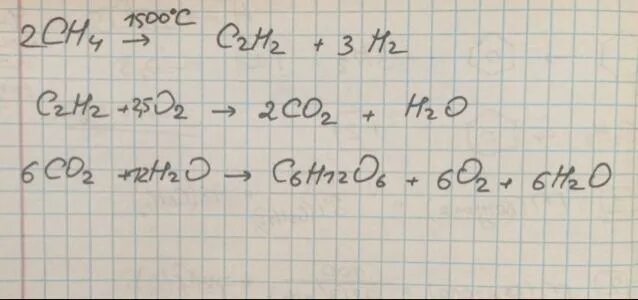 2CH4 1500°C → C2H2 + 3H2
C2H2 + 2,5O2 → 2CO2 + H2O
6CO2 + 12H2O → C6H12O6 + 6O2 + 6H2O